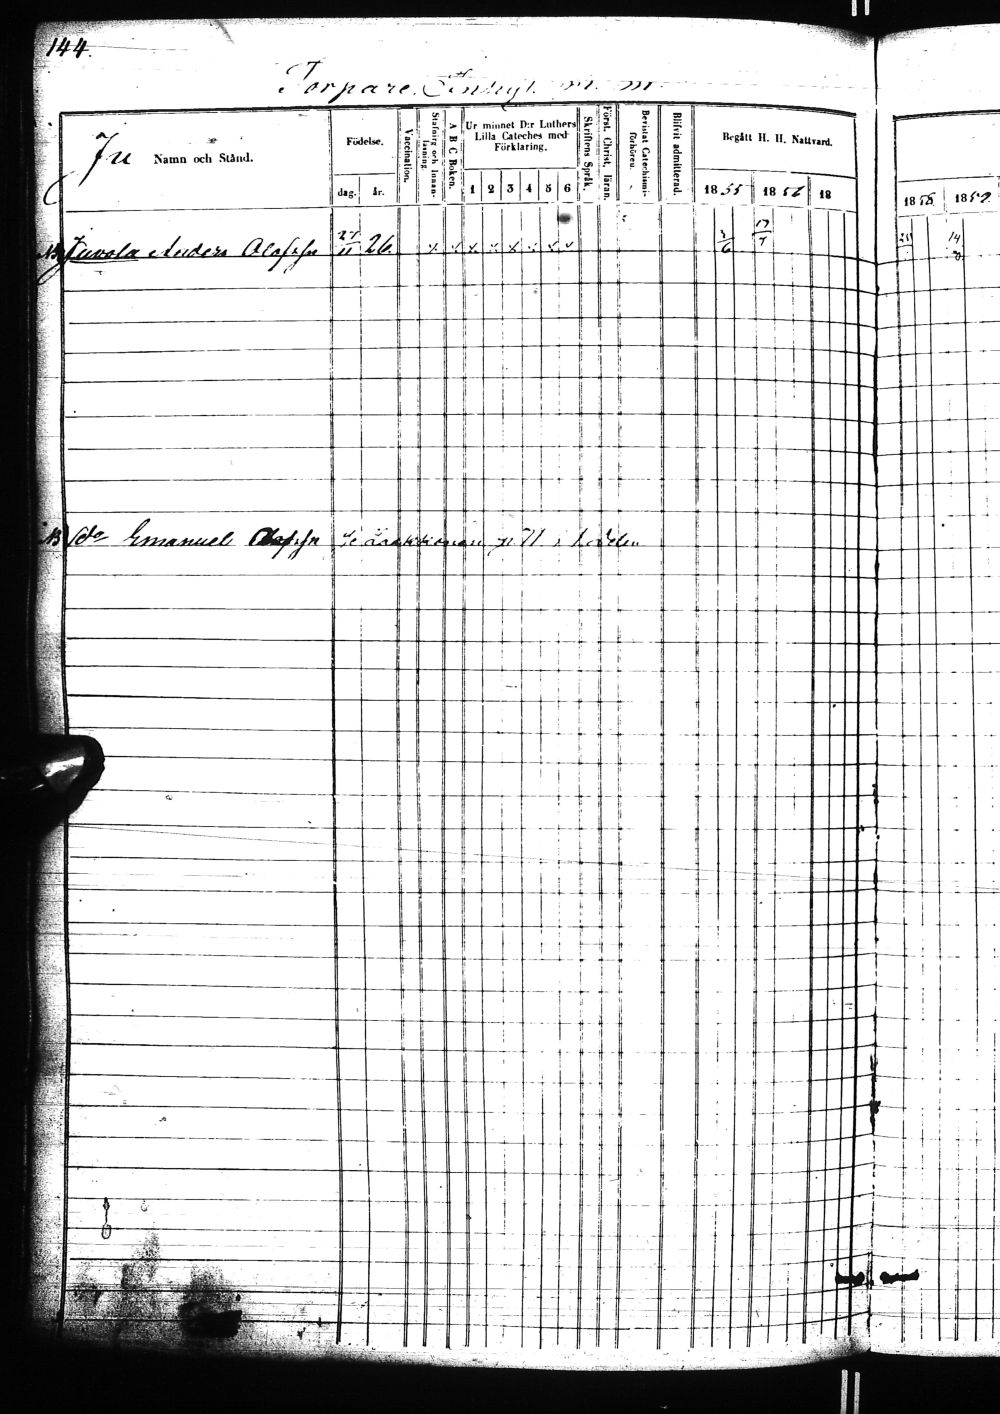 144.
Torpare, Inhys. m. m.
Ju Namn och Stånd.
Födelse.
dag. år.
Vaccination.
Stafning och Innan-läsning.
A B C Boken.
Ur minnet D:r Luthers
Lilla Cateches med
Förklaring.
1 2 3 4 5 6
Skriftens Språk.
Först. Christ. läran.
Bevistat Catechismi-förhören.
Blifvit admitterad.
Begått H. H. Nattvard.
1855 1856 18
1858 1859
Juvola Anders Olofs:n 11 26. 6 17/7 14
do Emanuel Olofs:n